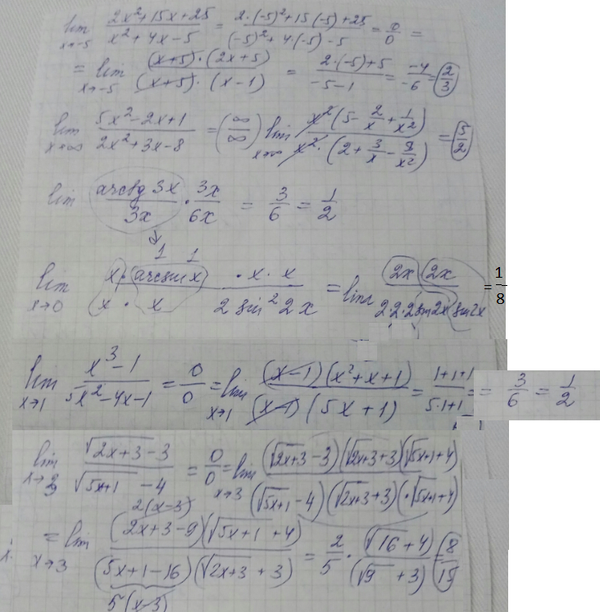 lim x→-5 (2x²+15x+25)/(x²+4x-5) = (2·(-5)²+15(-5)+25)/((-5)²+4(-5)-5) = 0/0 =
= lim x→-5 ((x+5)·(2x+5))/((x+5)·(x-1)) = (2·(-5)+5)/(-5-1) = -4/-6 = 2/3
lim x→∞ (5x²-2x+1)/(2x²+3x-8) = (∞/∞) lim x→∞ (x²(5-2/x+1/x²))/(x²·(2+3/x-8/x²)) = 5/2
lim (arctg 3x)/(3x) · 3x/6x = 3/6 = 1/2
↓
1 1
lim x→0 (x·(arcsin x) ·x·x)/(x·x 2 sin² 2x) = lim (2x · 2x)/(2·2·2 sin 2x sin 2x) = 1/8
lim x→1 (x³-1)/(5x²-4x-1) = 0/0 = lim x→1 ((x-1)(x²+x+1))/((x-1)(5x+1)) = (1+1+1)/(5·1+1) = = 3/6 = 1/2
lim x→3 (√(2x+3)-3)/(√(5x+1)-4) = 0/0 = lim x→3 ((√(2x+3)-3)(√(2x+3)+3)(√(5x+1)+4))/((√(5x+1)-4)(√(2x+3)+3)·(√(5x+1)+4))
2(x-3)
= lim x→3 ((2x+3-9)(√(5x+1)+4))/((5x+1-16)(√(2x+3)+3)) = 2/5 · (√16+4)/(√9+3) = 8/15
5(x-3)